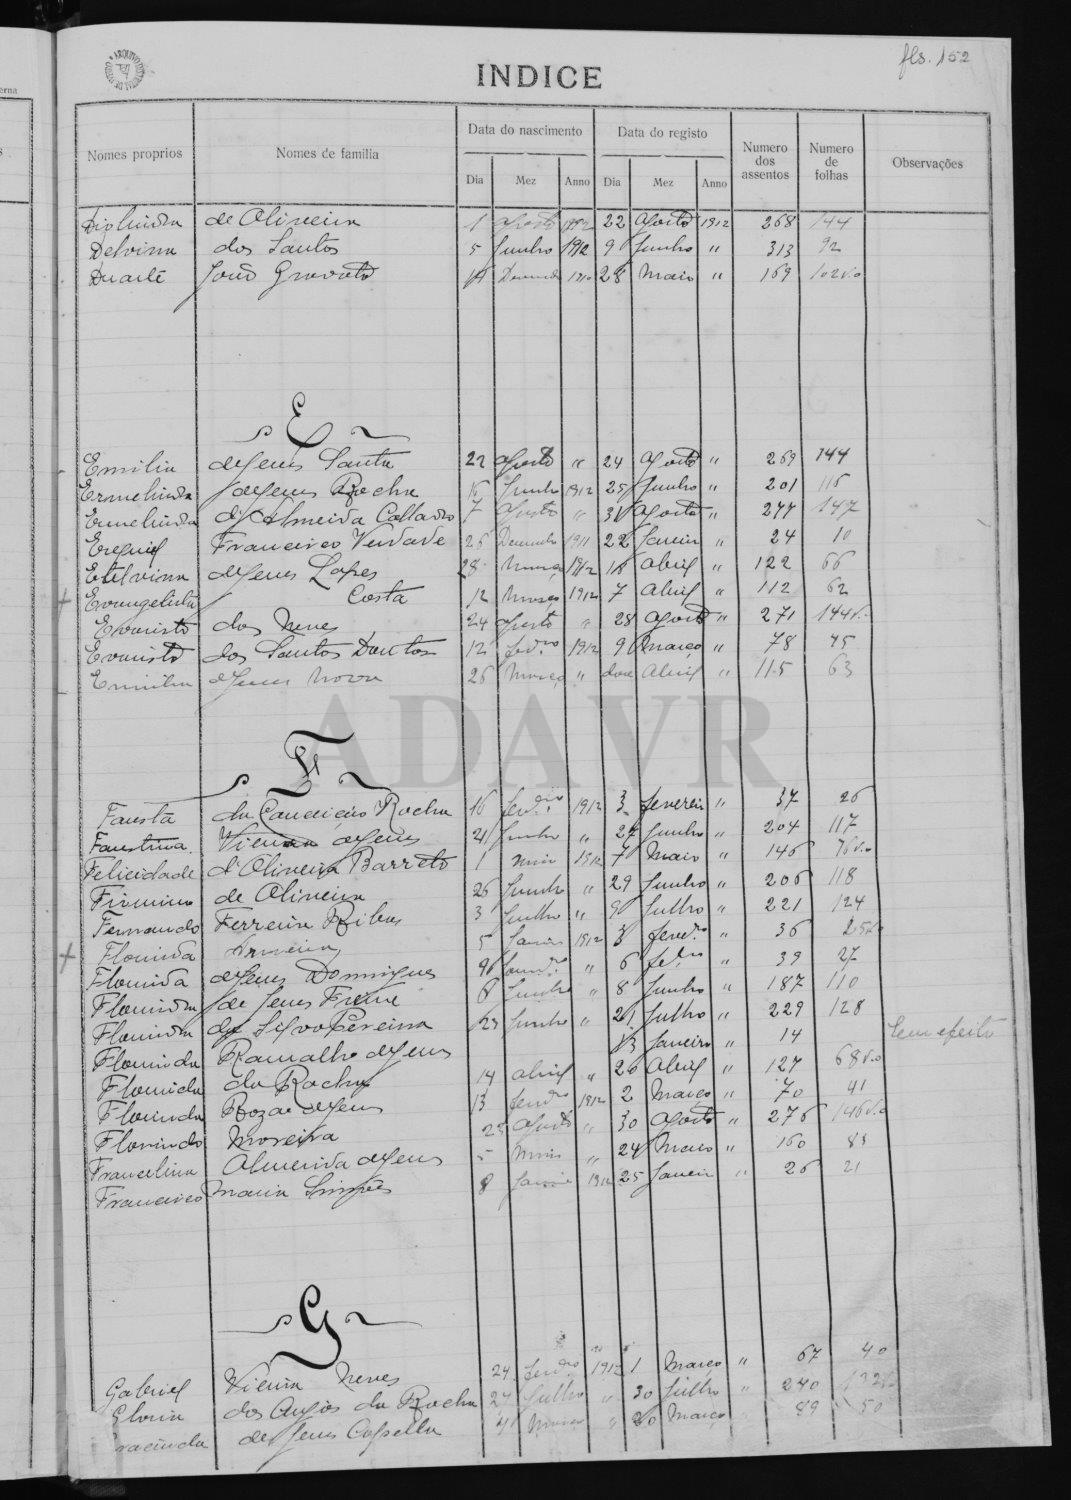 fls. 152
INDICE
Nomes proprios Nomes de familia Data do nascimento Data do registo Numero dos assentos Numero de folhas Observações
Dia Mez Anno Dia Mez Anno
de Oliveira 1 Agosto 1912 22 Agosto 1912 268 144
Delvina dos Santos 5 Junho 1912 9 Junho " 313 92
Duarte João Gravato 14 1910 28 Maio " 169 102v.o
E
Emilia de Jesus Santa 22 Agosto " 24 Agosto " 269 144
Ermelinda de Jesus Rocha 16 Junho 1912 25 Junho " 201 116
Ermelinda d'Almeida Calladro 7 Agosto " 31 Agosto " 277 147
Ezequiel Francisco Verdade 26 Dezembro 1911 22 Janeiro " 24 10
Etelvina de Jesus Lopes 28 Março 1912 16 Abril " 122 66
Evangelista Costa 12 Março 1912 7 Abril " 112 62
Evaristo das Neves 24 Agosto " 28 Agosto " 271 144v.o
Evaristo dos Santos 12 fev.ro 1912 9 Março " 78 45
Emilia de Jesus Nova 26 Março " doze Abril " 115 63
ADAVR
F
Fausta da Conceição Rocha 16 1912 3 Fevereiro " 37 26
Faustina Vieira de Jesus 21 Junho " 27 Junho " 204 117
Felicidade d'Oliveira Barreto 1 Maio 1912 7 Maio " 146 76v.o
Firmino de Oliveira 26 Junho " 29 Junho " 206 118
Fernando Ferreira Ribas 3 Julho " 9 Julho " 221 124
Florinda 5 Janeiro 1912 3 fever.o " 36 25v.o
Florinda de Jesus Domingues 9 " 6 fev.ro " 39 27
Florinda de Jesus Freire 8 Junho " 8 Junho " 187 110
Florinda da Silva Pereira 23 Junho " 21 Julho " 229 128
Florinda Ramalho de Jesus 13 Janeiro " 14 Sem efeito
Florinda da Rocha 14 Abril " 26 Abril " 127 68v.o
Florinda Roza de Jesus 13 fev.ro 1912 2 Março " 70 41
Florindo Moreira 25 Agosto " 30 Agosto " 276 146v.o
Francelina Almeida de Jesus 5 Maio " 24 Maio " 160 83
Francisco Maria Simões 8 Janeiro 1912 25 Janeiro " 26 21
G
Gabriel Vieira Neves 24 fev.ro 1912 1 Março " 67 40
Gloria dos Anjos da Rocha 27 Julho " 30 Julho " 240
racinda de Jesus Capella Março " 20 Março 89 50